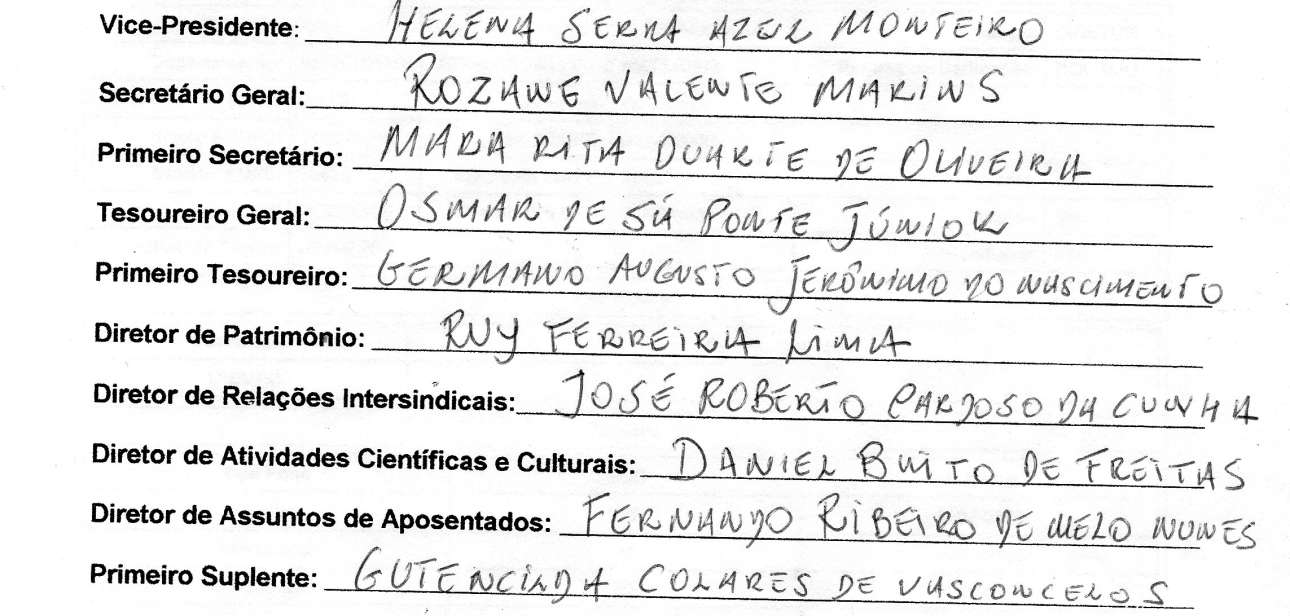 Vice-Presidente: HELENA SERRA AZUL MONTEIRO
Secretário Geral: ROZANE VALENTE MARINS
Primeiro Secretário: MARIA RITA DUARTE DE OLIVEIRA
Tesoureiro Geral: OSMAR DE SÁ PONTE JÚNIOR
Primeiro Tesoureiro: GERMANO AUGUSTO JERÔNIMO DO NASCIMENTO
Diretor de Patrimônio: RUY FERREIRA LIMA
Diretor de Relações Intersindicais: JOSÉ ROBERTO CARDOSO DA CUNHA
Diretor de Atividades Científicas e Culturais: DANIEL DE FREITAS
Diretor de Assuntos de Aposentados: FERNANDO RIBEIRO DE MELO NUNES
Primeiro Suplente: COLARES DE VASCONCELOS